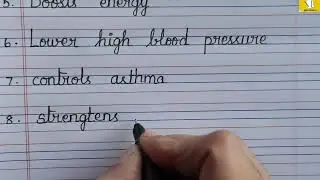 5. Boosts energy
6. Lower high blood pressure
7. controls asthma
8. strengtens